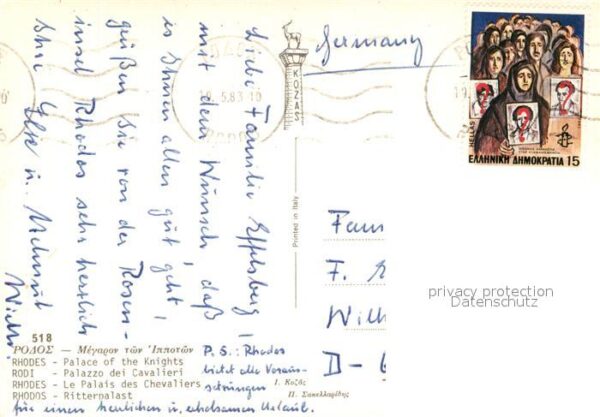 Liebe Familie Effelsberg!
mit dem Wunsch, daß
es Ihnen allen gut geht,
grüßen Sie von der Rosen-
insel Rhodos sehr herzlich
Ihre Else u. Helmut
P.S.: Rhodos
bietet alle Voraus-
setzungen
für einen herrlichen u. erholsamen Urlaub.
518
ΡΟΔΟΣ — Μέγαρον τῶν Ἱπποτῶν
RHODES - Palace of the Knights
RODI - Palazzo dei Cavalieri
RHODES - Le Palais des Chevaliers
RHODOS - Ritterpalast
Ι. Κοζᾶς
Π. Σακελλαρίδης
Printed in Italy
KOZAS
Germany
Fam
F. E
Wilh
D-6
5.83
HELLAS
ΕΛΛΗΝΙΚΗ ΔΗΜΟΚΡΑΤΙΑ 15
privacy protection
Datenschutz